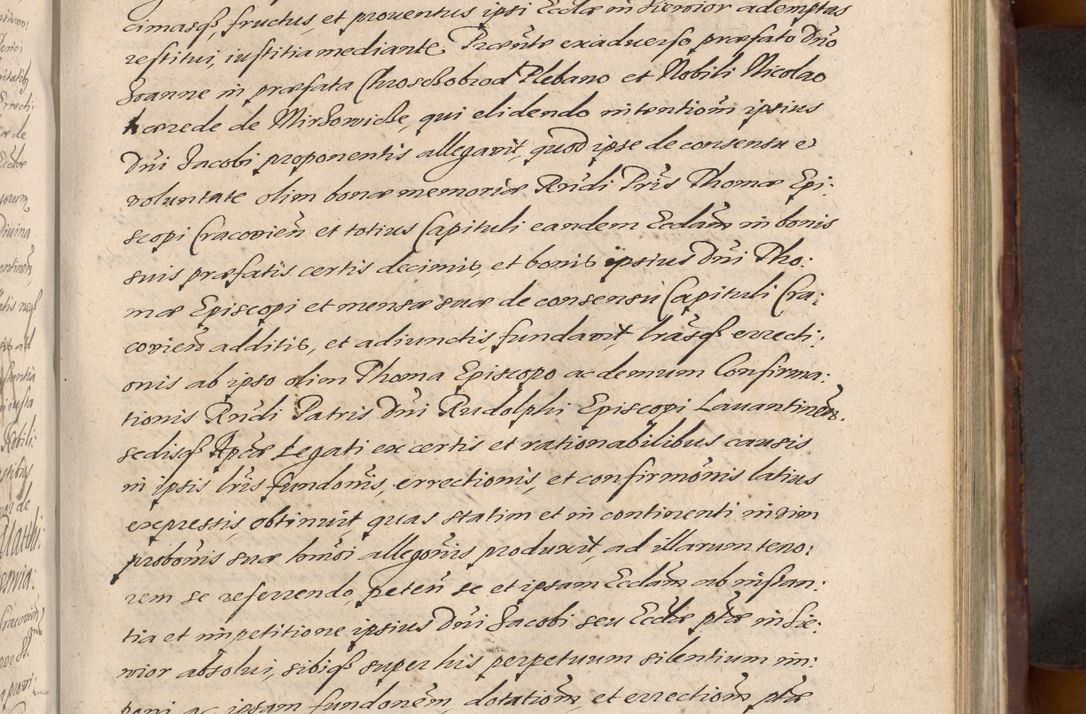 cimasq3, fructus, et prouentus ipsi Ecclæ in Siewior ademptas
restitui, iustitia mediante. Præsente ex aduerso præfato Dno
Joanne in præfata Chrosczobrod Plebano et Nobili Nicolao
hærede de Mirzowicze, qui elidendo intentionem ipsius
Dni Jacobi proponentis allegavit, quod ipse de consensu et
voluntate olim bonæ memoriæ Rndi Pris Thomæ Epi:
scopi Cracovien et totius Capituli eandem Ecclam in bonis
suis præfatis certis decimis, et bonis ipsius Dni Tho:
mæ Episcopi et mensæ suæ de consensu Capituli Cra:
covien additis, et adiunctis, fundavit, lrasq3 errecti:
onis ab ipso olim Thoma Episcopo ac demum Confirma:
tionis Rndi Patris Dni Rudolphi Episcopi Lavantinen.
sedisq3 Aplcæ Legati ex certis et rationabilibus causis
in ipsis lris fundonis, errectionis, et confirmonis latius
expressis, obtinuit quas statim et in continenti in vim
probonis suæ hmoi allegonis produxit, ad illarum teno:
rem se referrendo, peten se et ipsam Ecclam ab instan:
tia et impetitione ipsius Dni Jacobi seu Ecclæ ptæ in Sie:
wior absolui, sibiq3 super his perpetuum silentium im:
poni ac ipsam fundonem, dotationem et errectionem ptæ